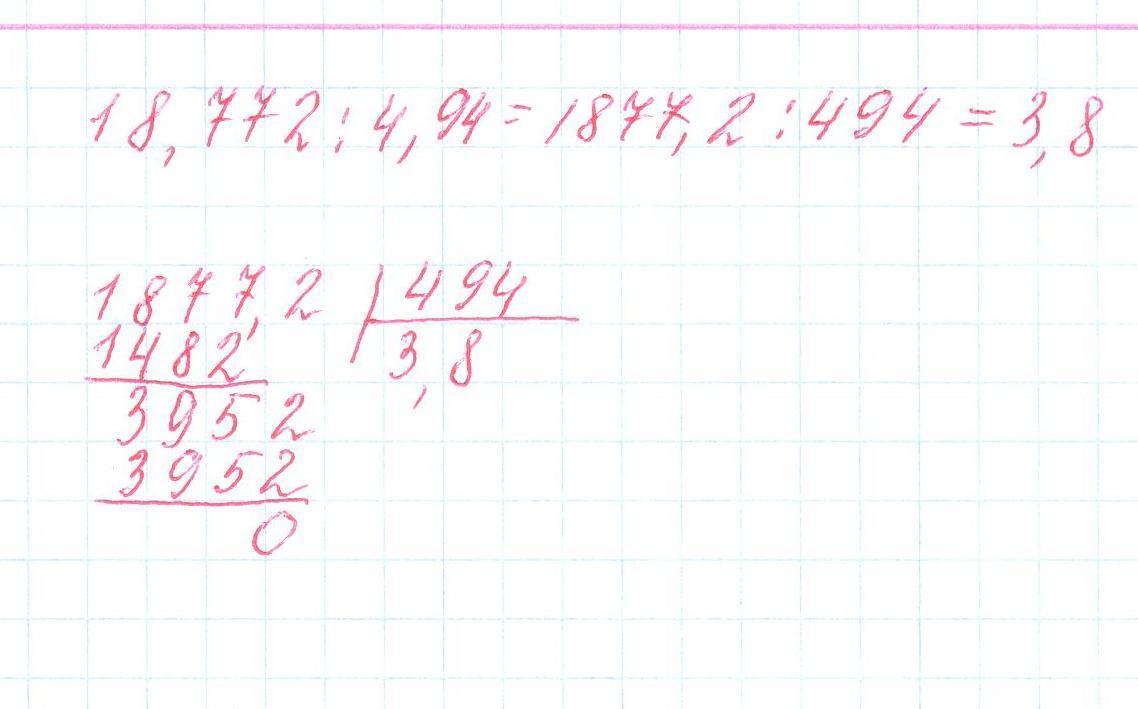 18,772:4,94=1877,2:494=3,8
1877,2 494
1482 3,8
3952
3952
0